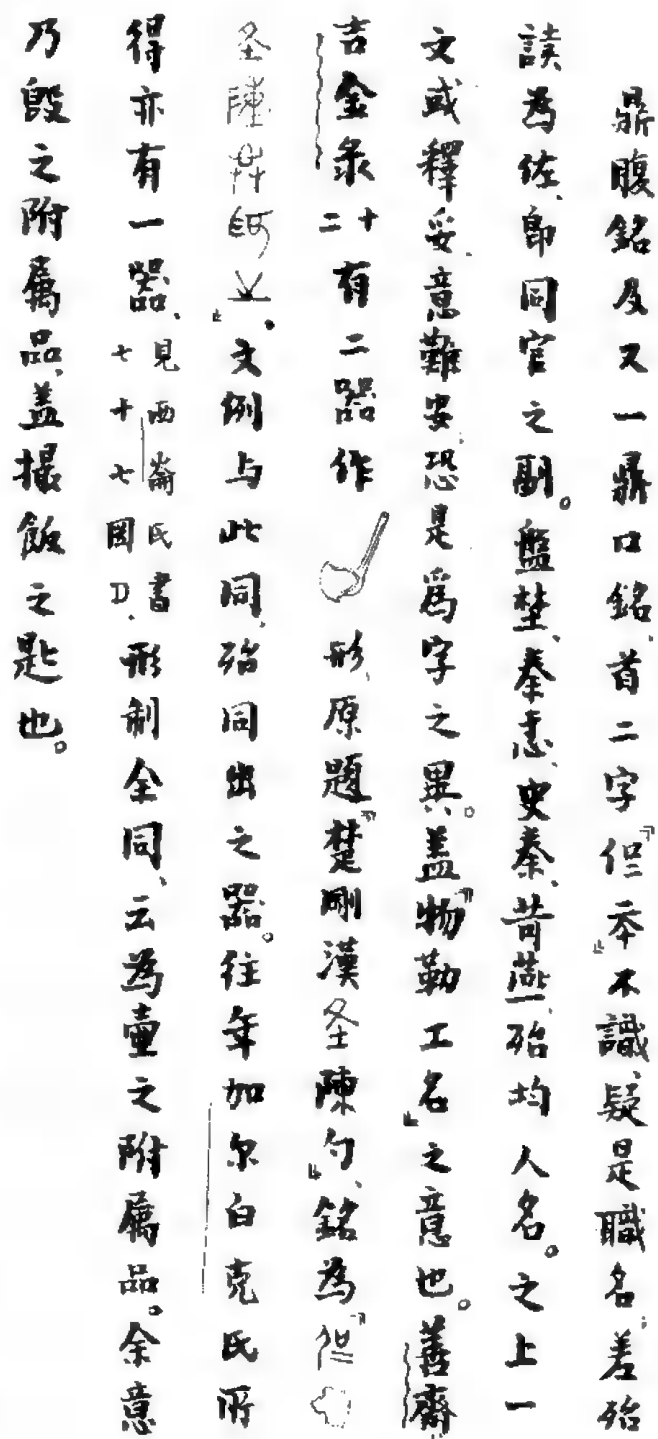 鼎腹銘及又一鼎口銘、首二字『但夲』不識、疑是職名、差殆
讀為佐、即同官之副。盤埜、秦忎、史秦、苛燕、殆均人名。之上一
文或釋妥、意難安、恐是爲字之異。蓋『物勒工名』之意也。善齋
吉金录十二有二器作形、原題『楚剛漢圣陳勺』、銘為『但
圣陳共為之』。文例与此同、殆同出之器。往年加尔白克氏所
得亦有一器、見西崙氏書七十七圖D、形制全同、云為壷之附屬品。余意
乃𣪘之附属品、盖撮飯之匙也。